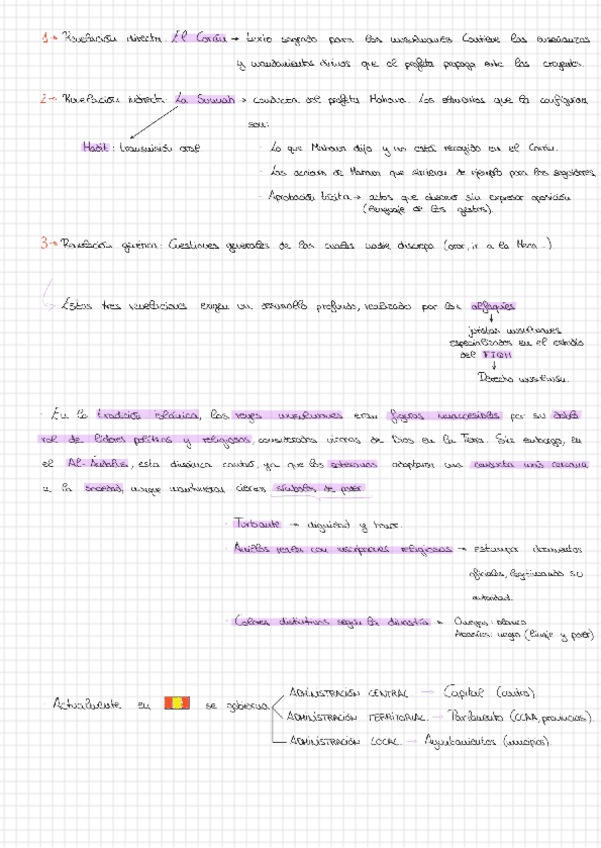 1→ Revelación directa: El Corán → texto sagrado para los musulmanes. Contiene las enseñanzas
y mandamientos divinos que el profeta propaga ante los creyentes.
2→ Revelación indirecta: La Sunnah → conducta del profeta Mahoma. Los elementos que la configuran
son:
Hadit: transmisión oral
· Lo que Mahoma dijo y no está recogido en el Corán.
· Las acciones de Mahoma que sirvieron de ejemplo para los seguidores.
· Aprobación tácita → actos que observó sin expresar oposición
(lenguaje de los gestos).
3→ Revelación genérica: Cuestiones generales de las cuales nadie discrepa (orar, ir a la Meca...)
Estas tres revelaciones exigen un desarrollo profundo, realizado por los alfaquíes
↓
juristas musulmanes
especializados en el estudio
del FIQH
↓
Derecho musulmán.
· En la tradición islámica, los reyes musulmanes eran figuras inaccesibles por su doble
rol de líderes políticos y religiosos, considerados vicarios de Dios en la Tierra. Sin embargo, en
el Al-Ándalus, esta dinámica cambió, ya que los soberanos adoptaron una conducta más cercana
a la sociedad, aunque mantuvieron ciertos símbolos de poder
· Turbante → dignidad y honor.
· Anillos reales con inscripciones religiosas → estampar documentos
oficiales, legitimando su
autoridad.
· Colores distintivos según la dinastía → Omeyas: blanco
Abasíes: negro (linaje y poder)
Actualmente en se gobierna
ADMINISTRACIÓN CENTRAL → Capital (centro)
ADMINISTRACIÓN TERRITORIAL → Parlamento (CCAA, provincias)
ADMINISTRACIÓN LOCAL → Ayuntamientos (municipios)